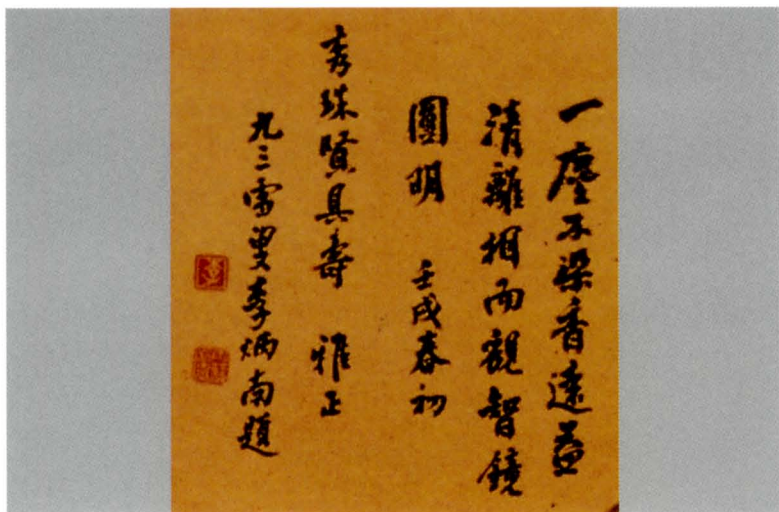 一塵不染香遠益
清離相而觀智鏡
圓明　壬戌春初
秀珠賢具壽　雅正
九三雪叟李炳南題